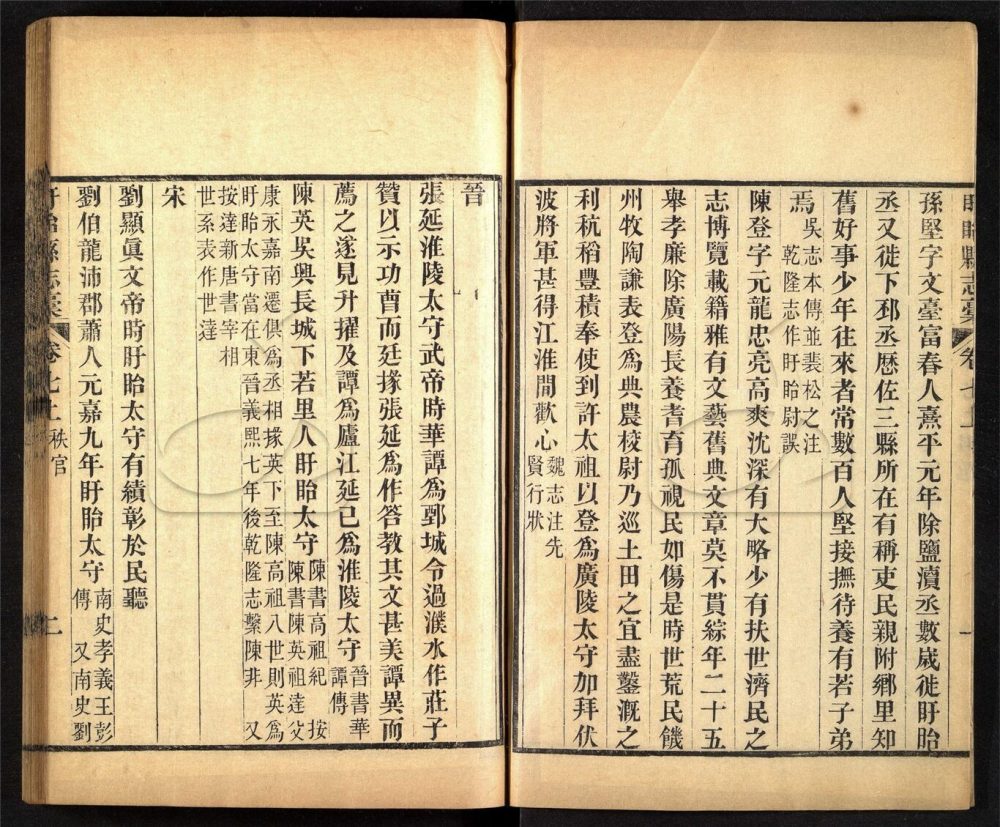 盱眙縣志稾 卷七上
孫堅字文臺富春人熹平元年除鹽瀆丞數歲徙盱眙
丞又徙下邳丞歷佐三縣所在有稱吏民親附鄉里知
舊好事少年往來者常數百人堅接撫待養有若子弟
焉吳志本傳並裴松之注
乾隆志作盱眙尉誤
陳登字元龍忠亮高爽沈深有大略少有扶世濟民之
志博覽載籍雅有文藝舊典文章莫不貫綜年二十五
舉孝廉除廣陽長養耆育孤視民如傷是時世荒民饑
州牧陶謙表登爲典農校尉乃巡土田之宜盡鑿溉之
利秔稻豐積奉使到許太祖以登爲廣陵太守加拜伏
波將軍甚得江淮間歡心魏志注先
賢行狀
晉
張延淮陵太守武帝時華譚爲鄄城令過濮水作莊子
贊以示功曹而廷掾張延爲作答教其文甚美譚異而
薦之遂見升擢及譚爲廬江延已爲淮陵太守晉書華
譚傳
陳英吳興長城下若里人盱眙太守陳書高祖紀 按
陳書陳英祖達父
康永嘉南遷俱爲丞相掾英下至陳高祖八世則英爲
盱眙太守當在東晉義熙七年後乾隆志繫陳非 又
按達新唐書宰相
世系表作世達
宋
劉顯眞文帝時盱眙太守有績彰於民聽
劉伯龍沛郡蕭人元嘉九年盱眙太守南史孝義王彭
傳 又南史劉
盱眙縣志稾 卷七上 秩官 二